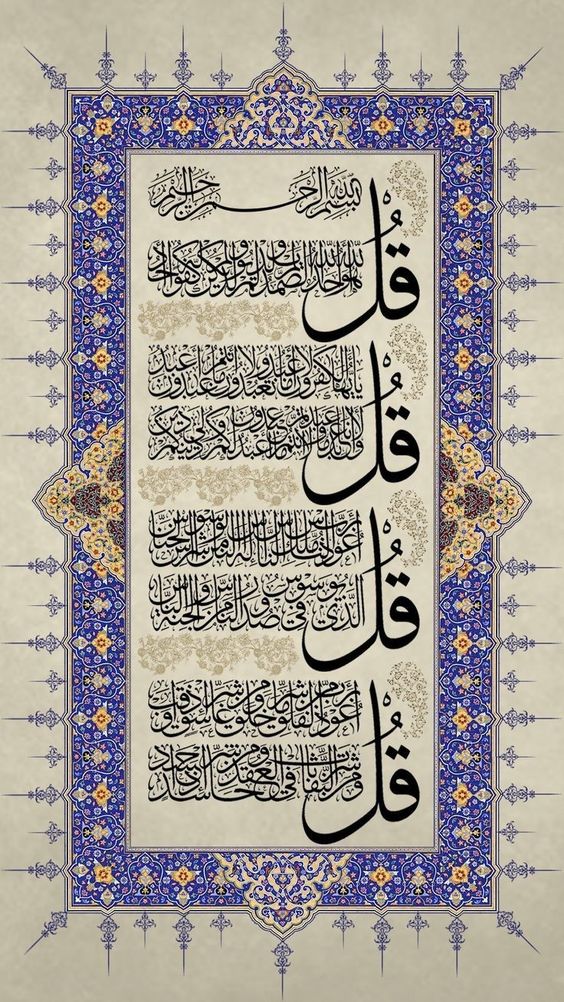 بسم الله الرحمن الرحيم
قُل هو الله أحد الله الصمد لم يلد ولم يولد ولم يكن له كفوا أحد
قُل يا أيها الكافرون لا أعبد ما تعبدون ولا أنتم عابدون ما أعبد
ولا أنا عابد ما عبدتم ولا أنتم عابدون ما أعبد لكم دينكم ولي دين
قُل أعوذ برب الناس ملك الناس إله الناس من شر الوسواس الخناس
الذي يوسوس في صدور الناس من الجنة والناس
قُل أعوذ برب الفلق من شر ما خلق ومن شر غاسق إذا وقب
ومن شر النفاثات في العقد ومن شر حاسد إذا حسد